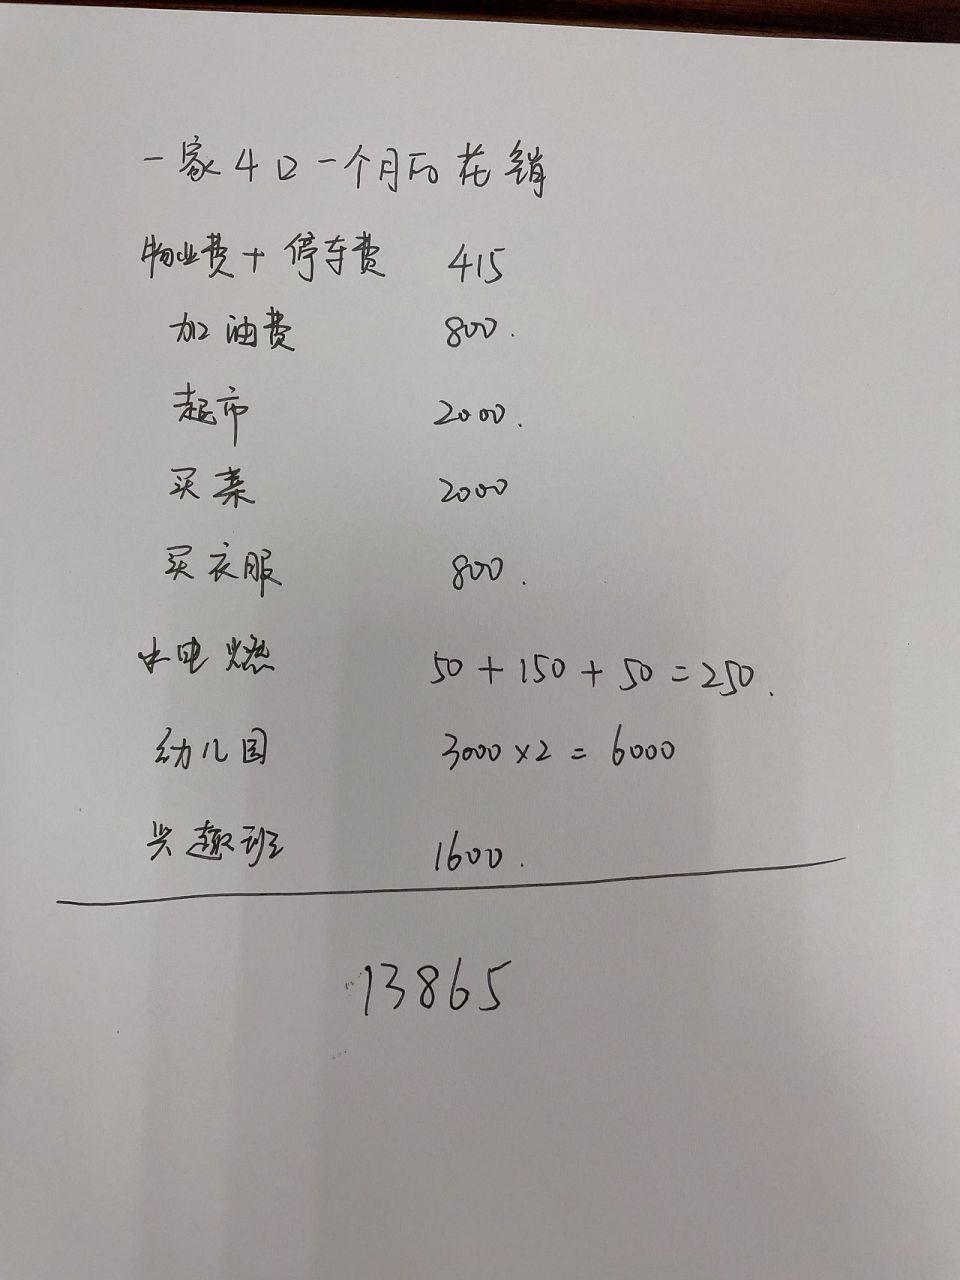 一家4口一个月的花销
物业费+停车费 415
加油费 800.
超市 2000.
买菜 2000
买衣服 800.
水电燃 50+150+50=250.
幼儿园 3000×2=6000
兴趣班 1600.
13865